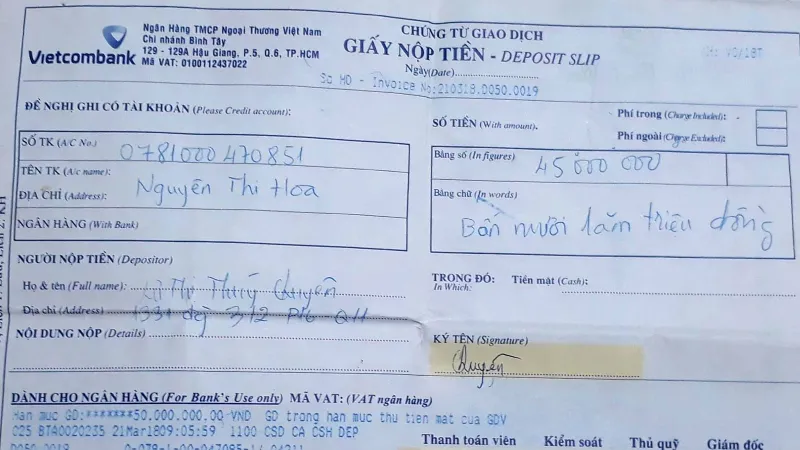 Vietcombank
Ngân Hàng TMCP Ngoại Thương Việt Nam
Chi nhánh Bình Tây
129 - 129A Hậu Giang, P.5, Q.6, TP.HCM
Mã VAT: 0100112437022
CHỨNG TỪ GIAO DỊCH
GIẤY NỘP TIỀN - DEPOSIT SLIP
Ngày(Date)
So HD - Invoice No:210318.0050.0019
ĐỀ NGHỊ GHI CÓ TÀI KHOẢN (Please Credit account):
SỐ TK (A/C No.) 0781000470851
TÊN TK (A/c name): Nguyễn Thi Hoa
ĐỊA CHỈ (Address):
NGÂN HÀNG (With Bank)
SỐ TIỀN (With amount).
Phí trong (Charge Included):
Phí ngoài (Charge Excluded):
Bằng số (In figures) 45 000 000
Bằng chữ (In words)
Bốn mười lăm triệu đồng
NGƯỜI NỘP TIỀN (Depositor)
Họ & tên (Full name): Thị Thuý Chuyên
Địa chỉ (Address) 312 Q11
NỘI DUNG NỘP (Details)
TRONG ĐÓ: Tiền mặt (Cash):
In Which:
KÝ TÊN (Signature)
DÀNH CHO NGÂN HÀNG (For Bank's Use only) MÃ VAT: (VAT ngân hàng)
Han muc GD:*******50.000.000.00 VND GD trong han muc thu tien mat cua GDV
025 BTA0020235 21Mar1809:05:59 1100 CSD CA CSH DEP
Thanh toán viên Kiểm soát Thủ quỹ Giám đốc